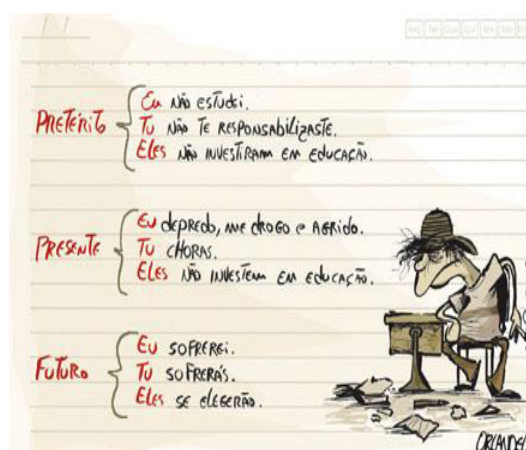 Seg Ter Qua Qui Sex Sáb
PRETÉRITO
Eu NÃO ESTUDEI.
Tu NÃO TE RESPONSABILIZASTE.
ELES NÃO INVESTIRAM EM EDUCAÇÃO.
PRESENTE
EU DEPREDO, ME DROGO E AGRIDO.
TU CHORAS.
ELES NÃO INVESTEM EM EDUCAÇÃO.
FUTURO
EU SOFREREI.
TU SOFRERÁS.
ELES SE ELEGERÃO.